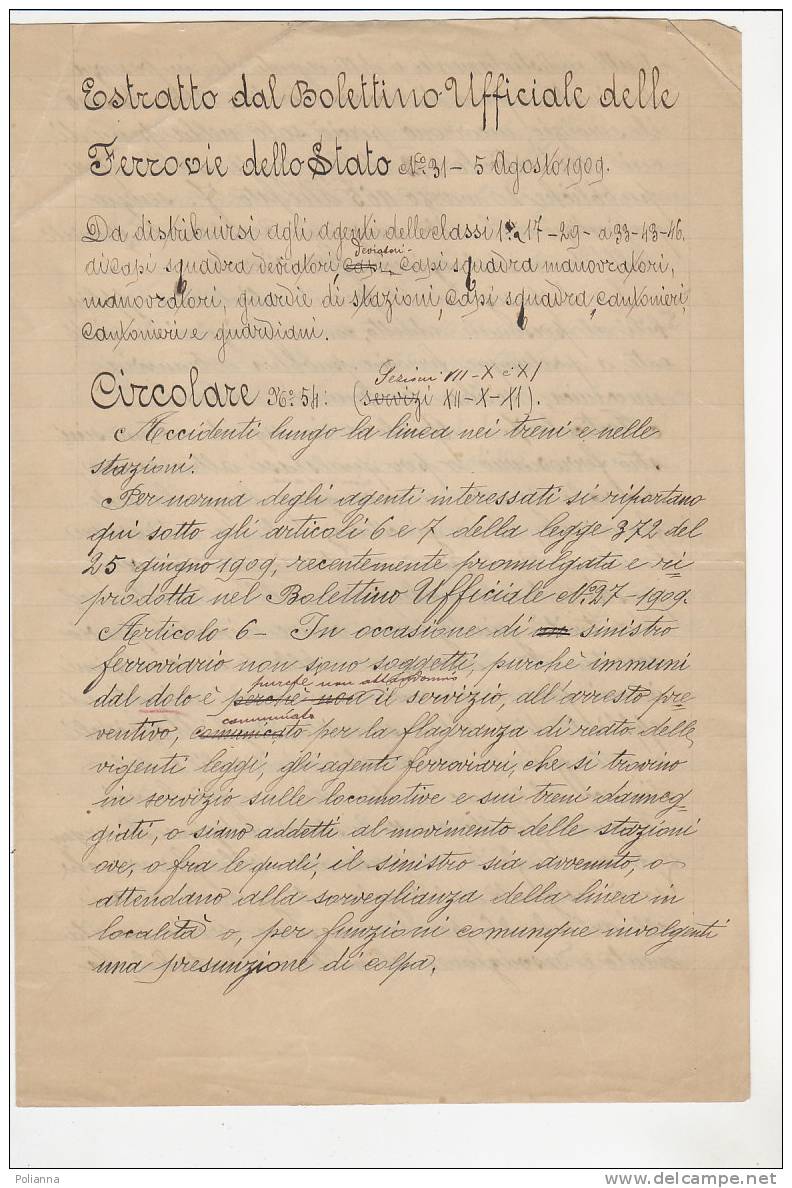 Estratto dal Bolettino Ufficiale delle
Ferrovie dello Stato No. 31 – 5 Agosto 1909.
Da distribuirsi agli agenti delle classi 17 – 29 – a 33 – 43 – 46,
deviatori
di capi squadra deviatori, capi, capi squadra manovratori,
manovratori, guardie di stazioni, capi squadra, cantonieri,
cantonieri e guardiani.
Sezioni VII – X e XI
Circolare No. 54: (servizi XII – X – XI).
Accidenti lungo la linea nei treni e nelle
stazioni.
Per norma degli agenti interessati si riportano
qui sotto gli articoli 6 e 7 della legge 372 del
25 giugno 1909, recentemente promulgata e ri=
prodotta nel Bolettino Ufficiale No. 27 – 1909.
Aerticolo 6 – In occasione di un sinistro
ferroviario non sono soggetti, purchè immuni
purchè non abbandonino
dal dolo è perchè non il servizio, all'arresto pre=
comminato
ventivo, comunicato per la flagranza di reato delle
vigenti leggi, gli agenti ferroviari, che si trovino
in servizio sulle locomotive e sui treni danneg=
giati, o siano addetti al movimento delle stazioni
ove, o fra le quali, il sinistro sia avvenuto, o
attendano alla sorveglianza della linea in
località o, per funzioni comunque involgenti
una presunzione di colpa.
Polianna
delcampe.net